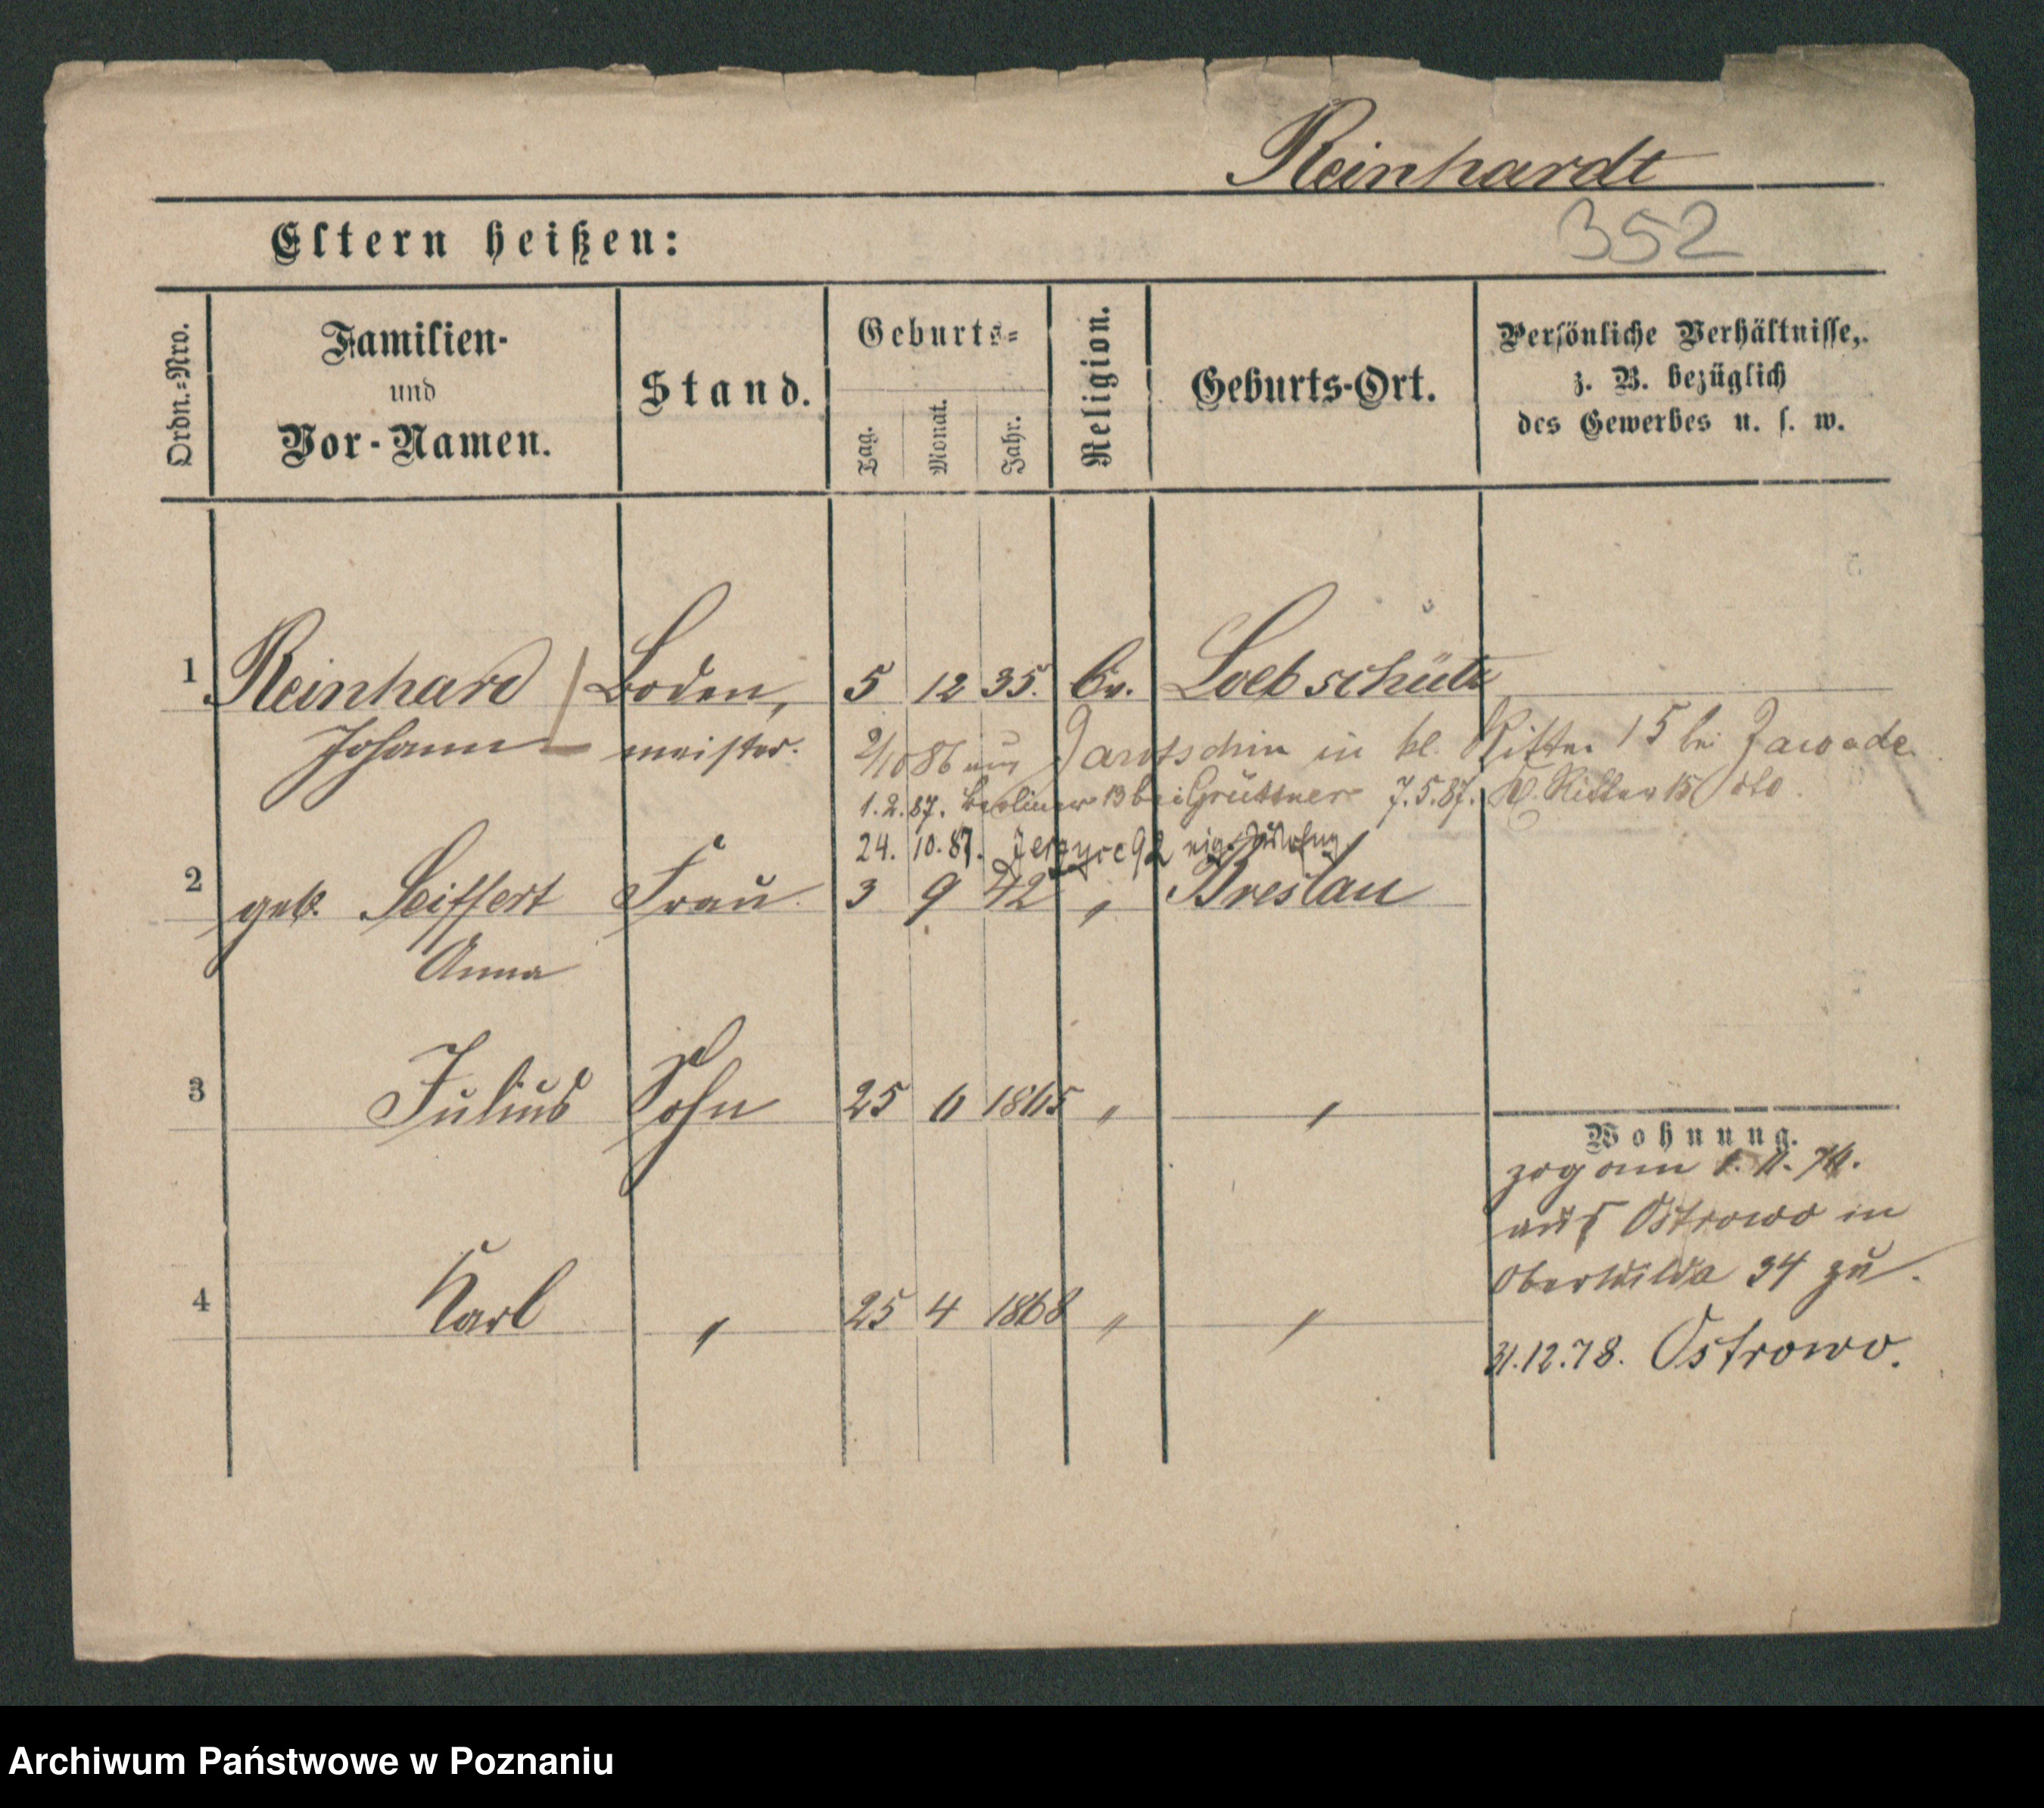 Reinhardt
352
Eltern heißen:
Ordn.=Nro.
Familien-
und
Vor-Namen.
Stand.
Geburts=
Tag.
Monat.
Jahr.
Religion.
Geburts-Ort.
Persönliche Verhältnisse,
z. B. bezüglich
des Gewerbes u. s. w.
1 Reinhard Boden, 5 12 35. Ev. Loebschütz
Johann meister. 2/10 86 aus Jarotschin in kl. Ritter 15 bei Zawade
1.2.87. Berliner 13 bei Grüttner 7.5.87. Kl. Ritter 15
24. 10. 87. Jerzyce 92
2 geb. Seiffert Frau 3 9 42 " Breslau
Anna
3 Julius Sohn 25 6 1865 " "
Wohnung.
zog am
aus Ostrowo in
Oberwilda 34 zu.
4 Karl " 25 4 1868 " "
31.12.78. Ostrowo.
Archiwum Państwowe w Poznaniu